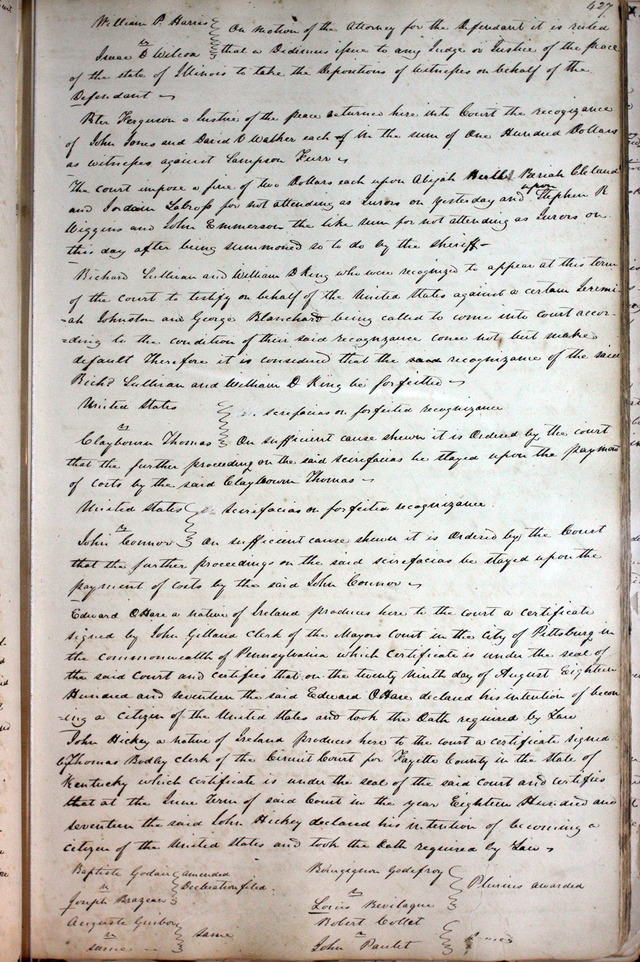 427
William P. Harris
vs
Isaac D Wilcox
On motion of the Attorney for the Defendant it is ruled
that a Didimus issue to any Judge or Justice of the peace
of the state of Illinois to take the Depositions of Witnesses on behalf of the
Defendant
Peter Ferguson a Justice of the peace returns here into Court the recognizance
of John Jones and David D Walker each in the sum of One Hundred Dollars
as witnesses against Sampson Furr
The court impose a fine of two Dollars each upon Abijah Hull Beriah Cleland
and for not attending as Jurors on yesterday and upon Stephen R
Wiggins and John Emmerson the like sum for not attending as Jurors on
this day after being summoned so to do by the sheriff
Richard Sullivan and William D King who were recognized to appear at this term
of the court to testify on behalf of the United States against a certain Jeremi-
-ah Johnston and George Blanchard being called to come into Court accor-
-ding to the condition of their said recognizance come not but make
default Therefore it is considered that the said recognizance of the said
Richd Sullivan and William D King be forfeited
United States
vs
scirefacias on forfeited recognizance
Claybourn Thomas
On sufficient cause shewn it is Ordered by the court
that the further proceeding on the said scirefacias be stayed upon the payment
of costs by the said Claybourn Thomas
United States
vs
scirefacias on forfeited recognizance
John Connor
On sufficient cause shewn it is ordered by the Court
that the further proceedings on the said scirefacias be stayed upon the
payment of costs by the said John Connor
Edward OHare a native of Ireland produces here to the court a certificate
signed by John Gilland clerk of the Mayors Court in the City of Pittsburg in
the commonwealth of Pennsylvania which certificate is under the seal of
the said Court and certifies that on the twenty ninth day of August Eighteen
Hundred and seventeen the said Edward OHare declared his intention of becom
-ing a citizen of the United States and took the Oath required by Law
John Hickey a native of Ireland produces here to the court a certificate signed
by Thomas Bodley clerk of the Circuit Court for Fayette County in the State of
Kentucky which certificate is under the seal of the said Court and certifies
that at the June Term of said Court in the year Eighteen Hundred and
seventeen the said John Hickey declared his intention of becoming a
citizen of the United States and took the Oath required by Law
Baptiste Godair
vs
Joseph Brazeau
amended
Declaration filed.
Bourgignon Godefroy
vs
Louis Bevilaque
Plurius awarded
Auguste
vs
same
same
Robert Collet
vs
John Paulet